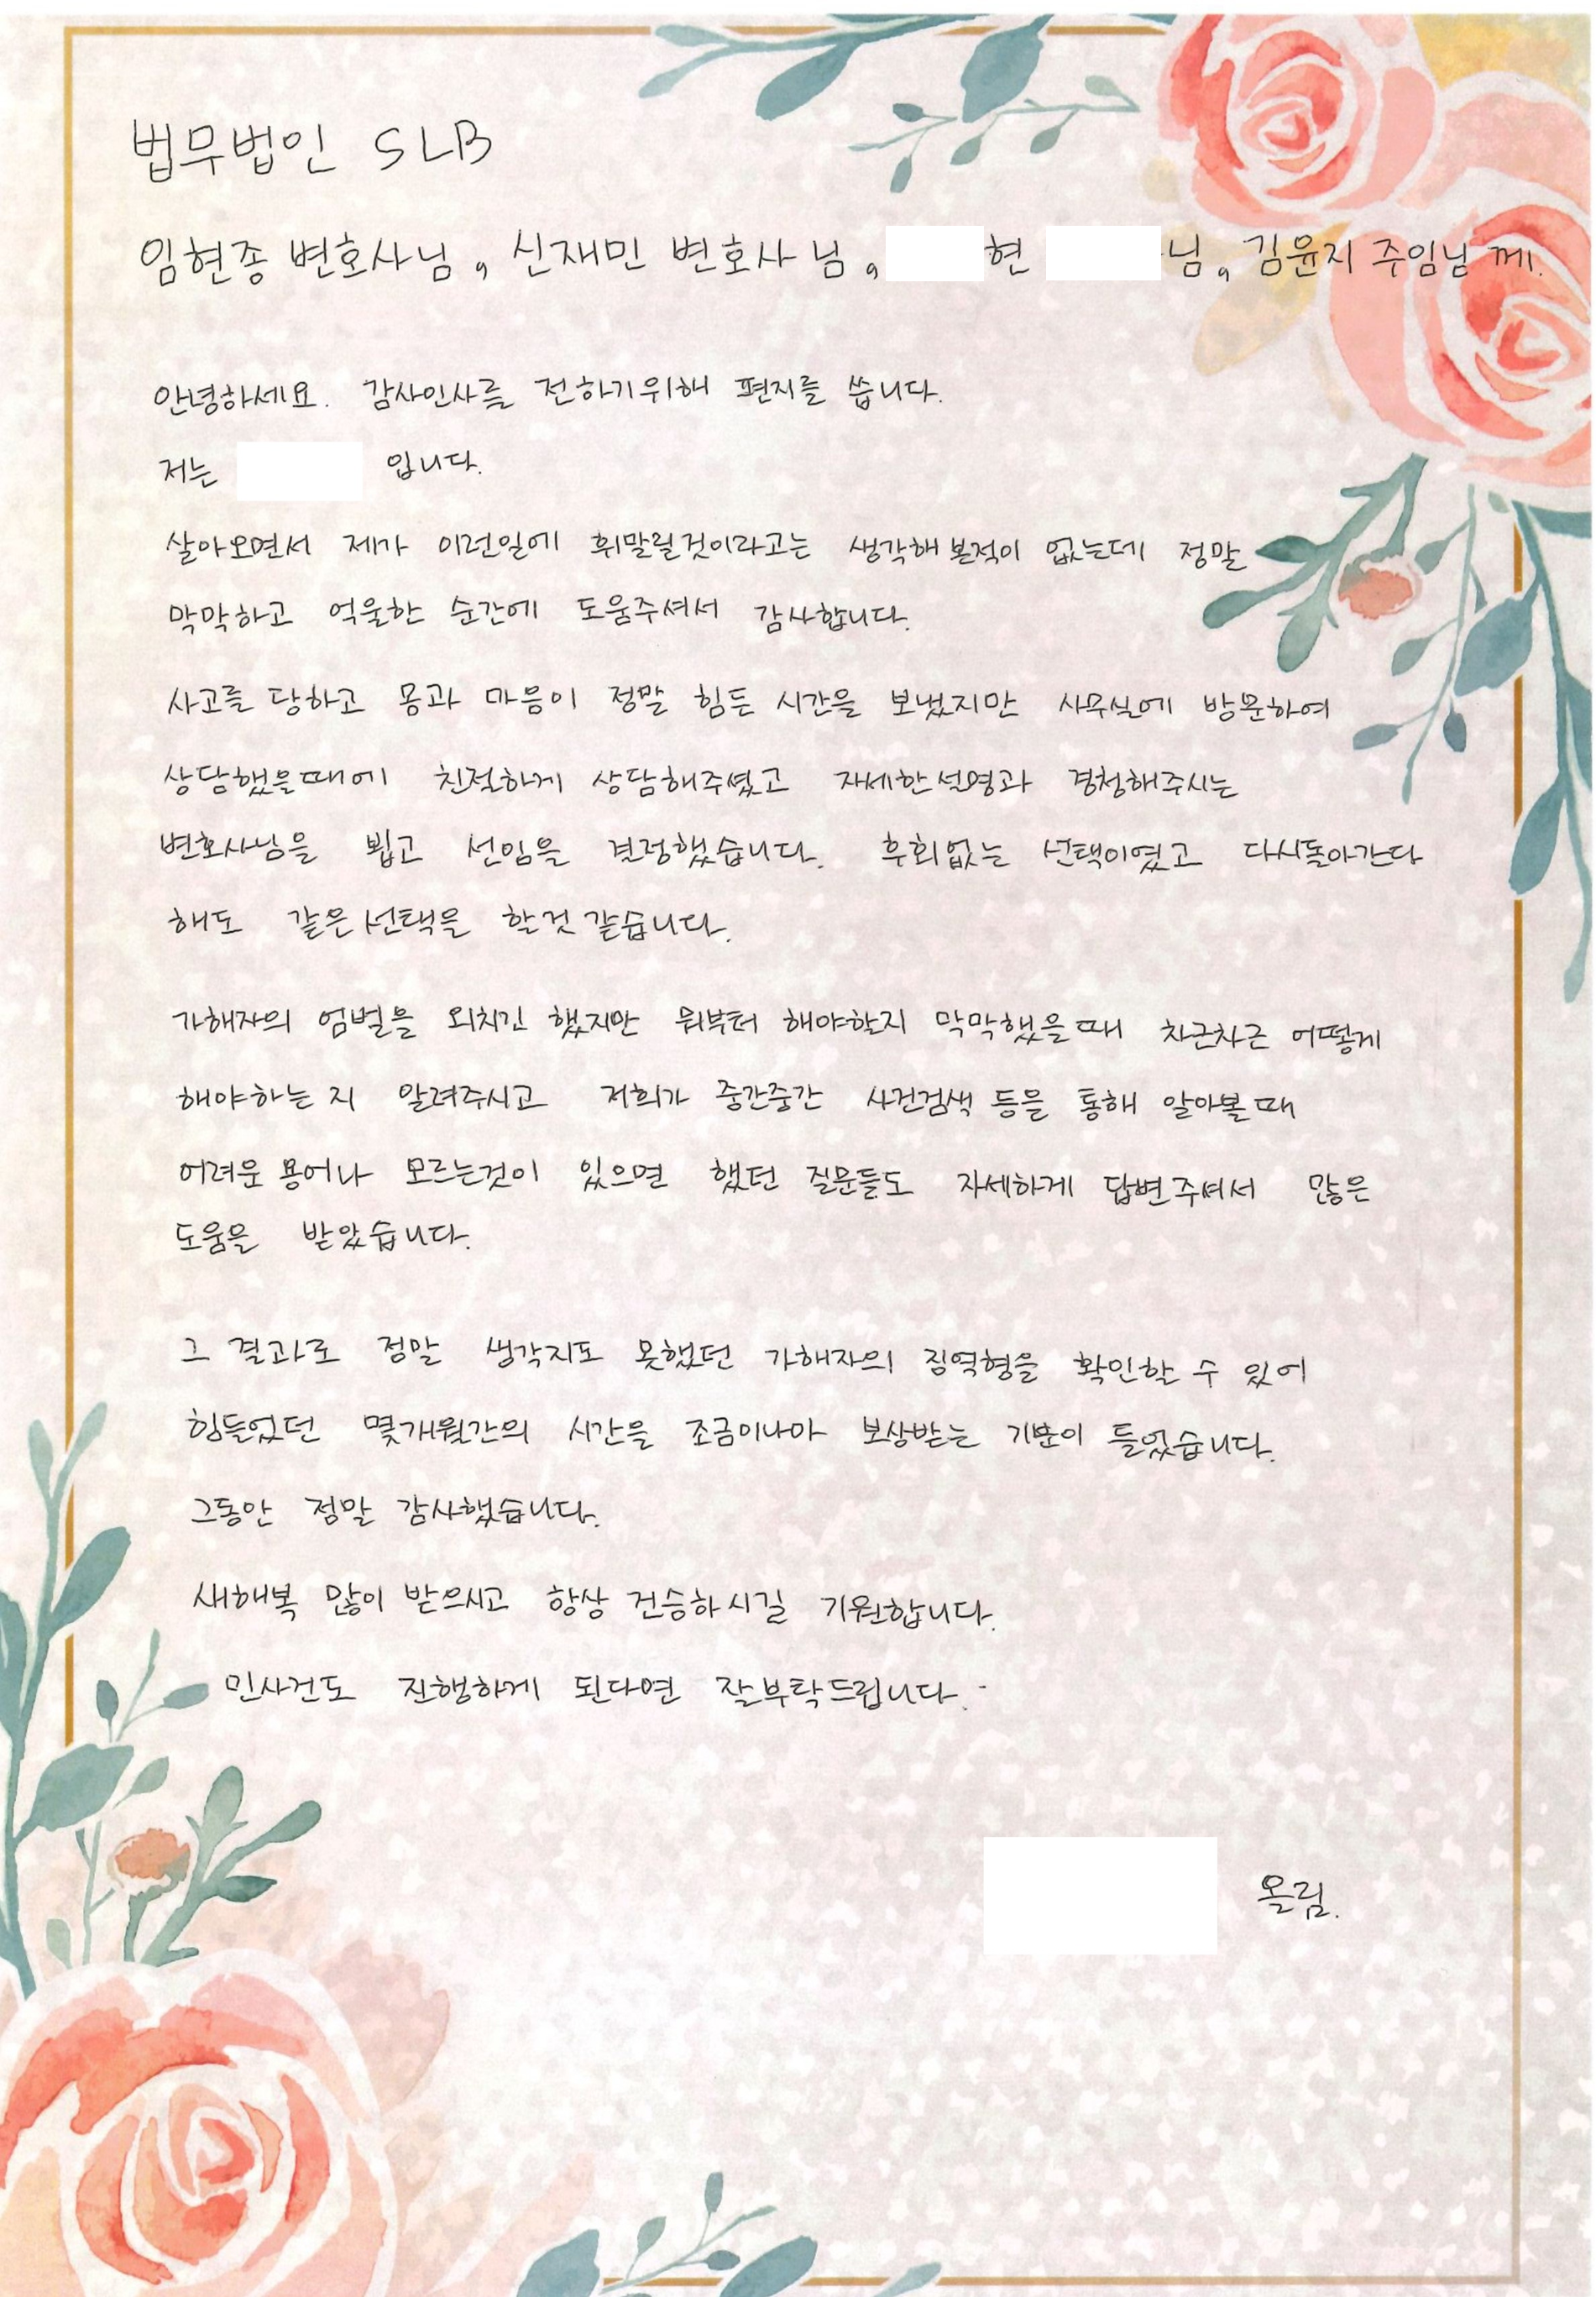 법무법인 SLB
임현종 변호사님, 신재민 변호사님, 현 님, 김윤지 주임님 께.
안녕하세요. 감사인사를 전하기위해 편지를 씁니다.
저는 입니다.
살아오면서 제가 이런일에 휘말릴것이라고는 생각해본적이 없는데 정말
막막하고 억울한 순간에 도움주셔서 감사합니다.
사고를 당하고 몸과 마음이 정말 힘든 시간을 보냈지만 사무실에 방문하여
상담했을때에 친절하게 상담해주셨고 자세한설명과 경청해주시는
변호사님을 뵙고 선임을 결정했습니다. 후회없는 선택이였고 다시돌아간다
해도 같은선택을 할것 같습니다.
가해자의 엄벌을 외치긴 했지만 뭐부터 해야할지 막막했을때 차근차근 어떻게
해야하는지 알려주시고 저희가 중간중간 사건검색 등을 통해 알아볼때
어려운 용어나 모르는것이 있으면 했던 질문들도 자세하게 답변주셔서 많은
도움을 받았습니다.
그 결과로 정말 생각지도 못했던 가해자의 징역형을 확인할 수 있어
힘들었던 몇개월간의 시간을 조금이나마 보상받는 기분이 들었습니다.
그동안 정말 감사했습니다.
새해복 많이 받으시고 항상 건승하시길 기원합니다.
민사건도 진행하게 된다면 잘부탁드립니다.
올림.